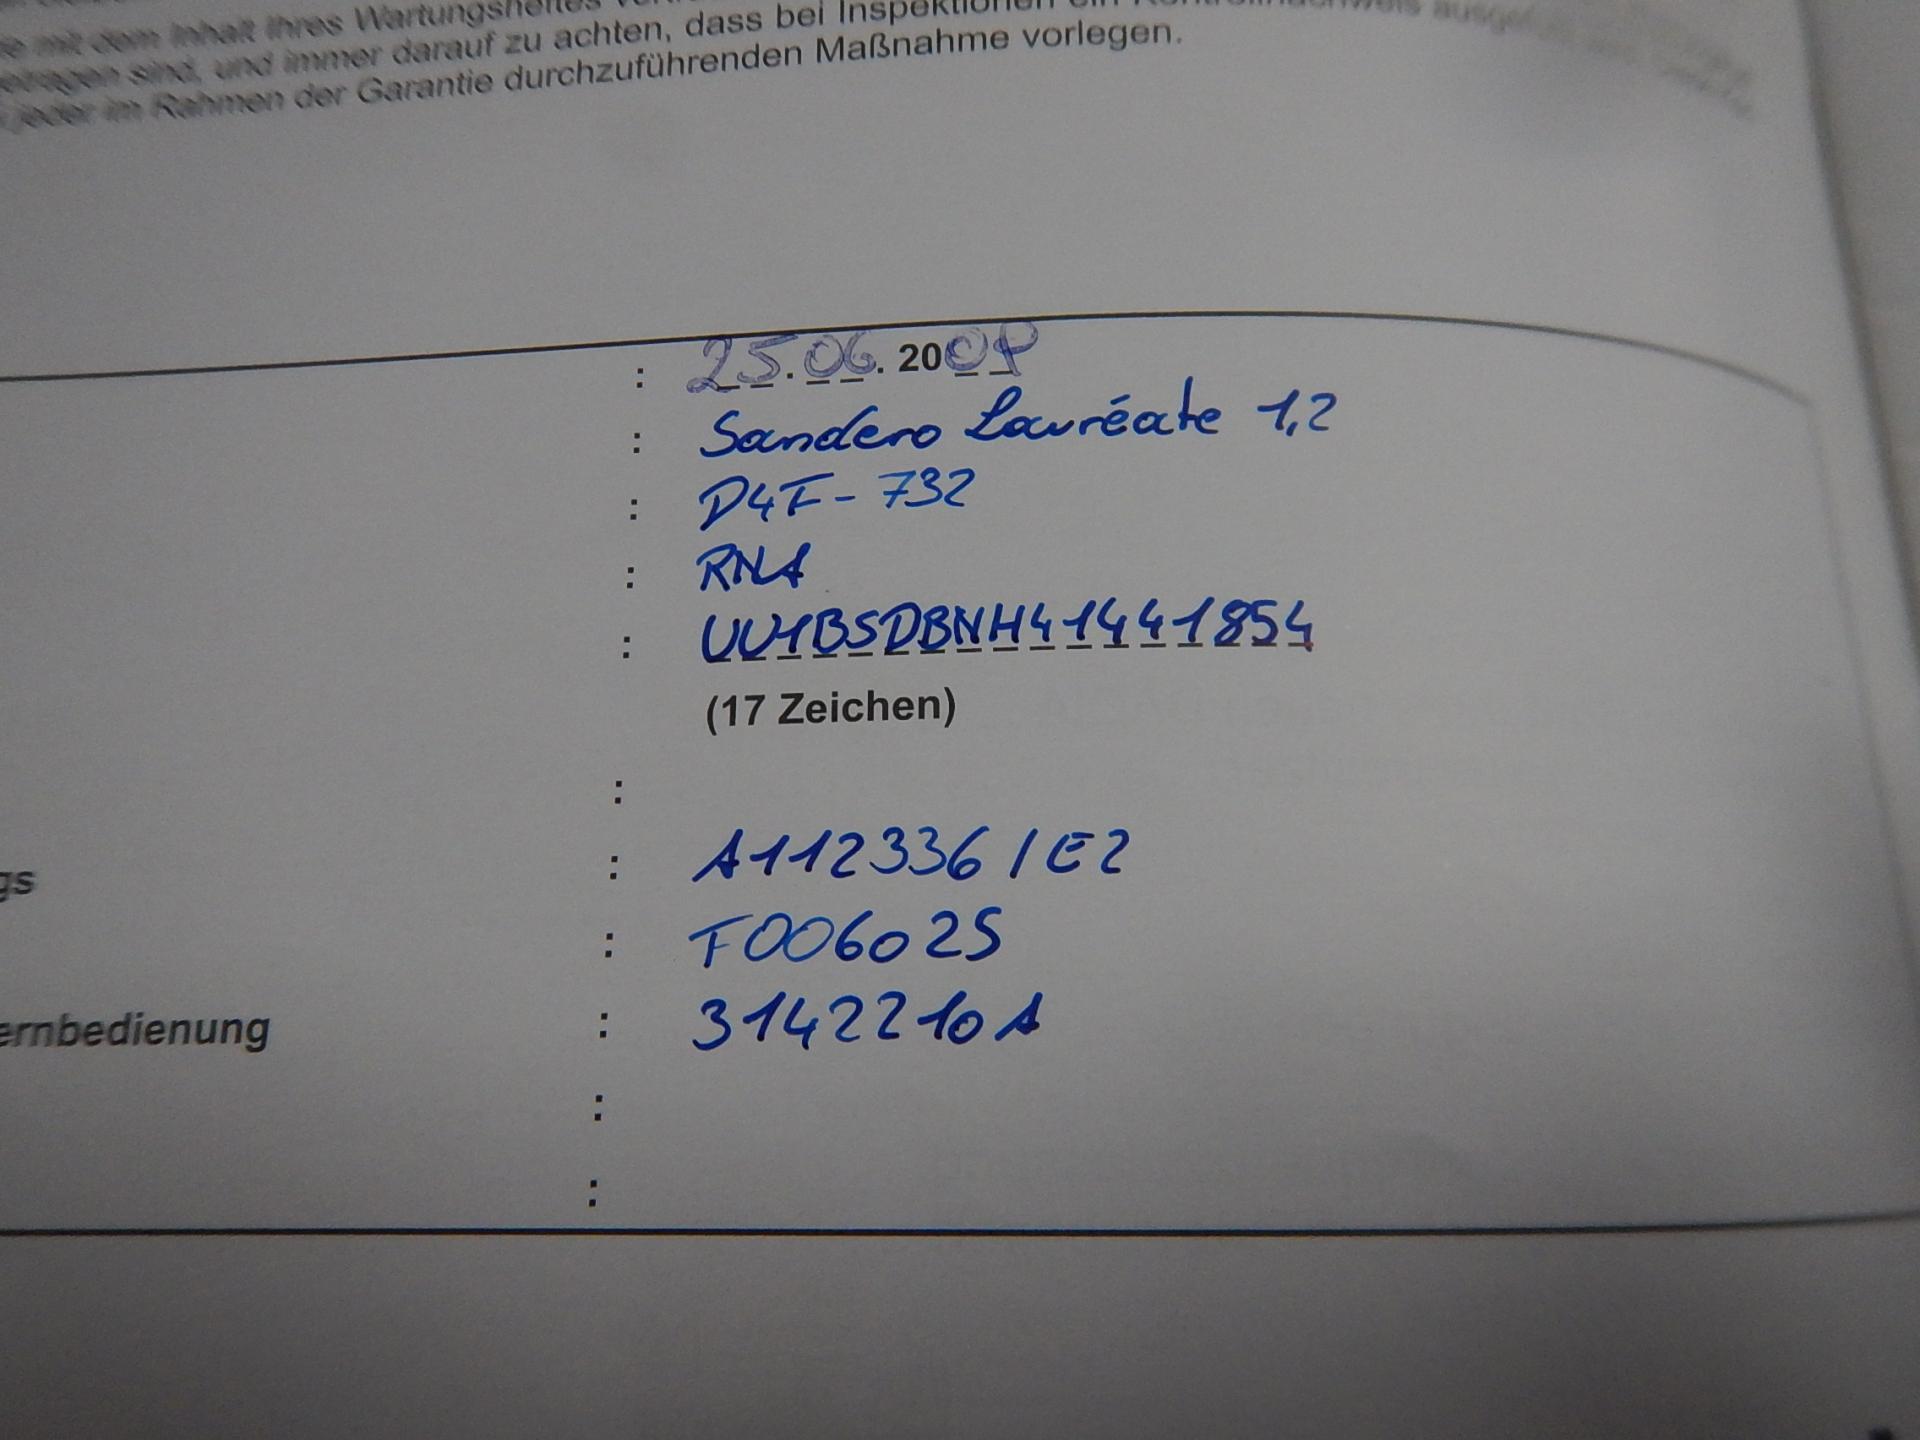 mit dem Inhalt Ihres Wartungsheftes
sind, und immer darauf zu achten, dass bei Inspektionen ein Kontrollnachweis
jeder im Rahmen der Garantie durchzuführenden Maßnahme vorlegen.
: 25.06.2009
: Sandero Lauréate 1,2
: D4F-732
: RNA
: UU1BSDBNH41441854
(17 Zeichen)
:
gs : A112336 / E2
: T006025
ernbedienung : 3142210A
:
: